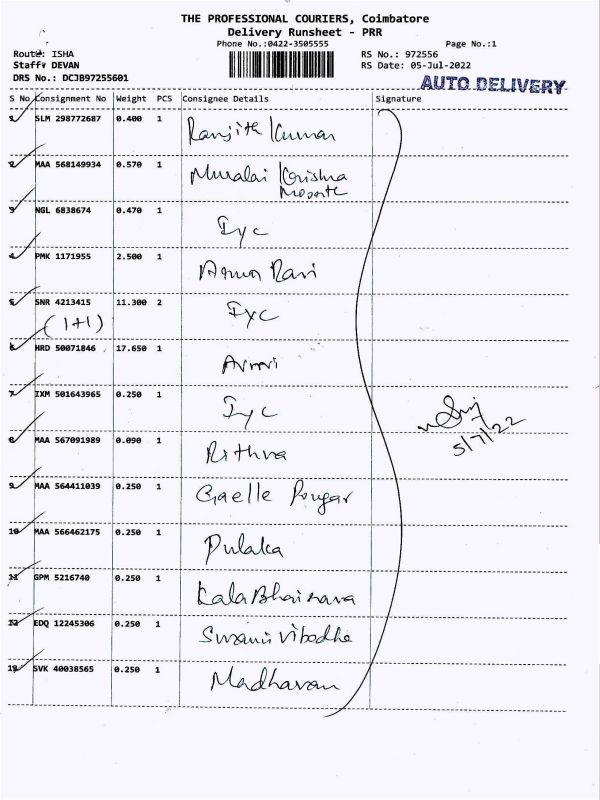 THE PROFESSIONAL COURIERS, Coimbatore
Delivery Runsheet - PRR
Phone No.:0422-3505555
Page No.:1
Route: ISHA
RS No.: 972556
Staff: DEVAN
RS Date: 05-Jul-2022
DRS No.: DCJB97255601
AUTO DELIVERY
S No Consignment No Weight PCS Consignee Details Signature
1 SLM 298772687 0.400 1 Ranjith Kumar
2 MAA 568149934 0.570 1 Muralai Krishna
3 NGL 6838674 0.470 1 Iyc
4 PMK 1171955 2.500 1 Arun Ravi
5 SNR 4213415 11.300 2 Iyc
(1+1)
6 HRD 50071846 17.650 1
7 IXM 501643965 0.250 1 Iyc
8 MAA 567091989 0.090 1 Rithva
9 MAA 564411039 0.250 1 Gaelle
10 MAA 566462175 0.250 1 Pulaka
11 GPM 5216740 0.250 1 KalaBhairava
12 EDQ 12245306 0.250 1 Swami Vibodha
13 SVK 40038565 0.250 1 Madhavan
5/7/22